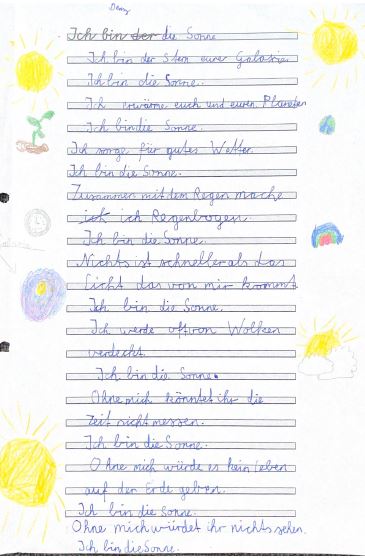 Deny
Ich bin der die Sonne
Ich bin der Stern eurer Galaxie.
Ich bin die Sonne.
Ich erwärme euch und euren Planeten
Ich bin die Sonne.
Ich sorge für gutes Wetter.
Ich bin die Sonne.
Zusammen mit dem Regen mache
ich ich Regenbogen.
Ich bin die Sonne.
Nichts ist schneller als das
Licht das von mir kommt
Ich bin die Sonne.
Ich werde oft von Wolken
verdeckt.
Ich bin die Sonne.
Ohne mich könntet ihr die
Zeit nicht messen.
Ich bin die Sonne.
Ohne mich würde es kein Leben
auf der Erde geben.
Ich bin die Sonne.
Ohne mich würdet ihr nichts sehen.
Ich bin die Sonne.